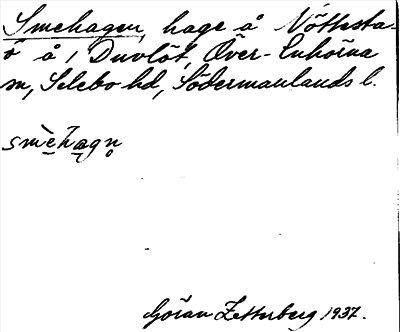 Smehagen, hage å Nöttesta-
ö å 1 Duvlöt, Över-Enhörna
sn, Selebo hd, Södermanlands l.
smèhagn̥
Göran Zetterberg 1937.